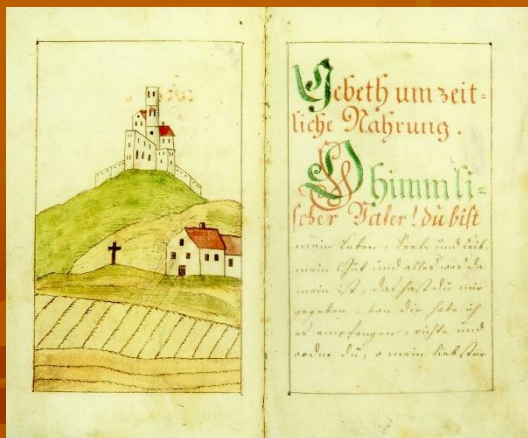 Gebeth um zeit=
liche Nahrung.
O himmli=
scher Vater! du bist
mein Leben, Seele und Leib,
mein Gut und alles was da
mein ist, das hast du mir
gegeben, von dir habe ich
es empfangen, richte und
ordne du, o mein liebster